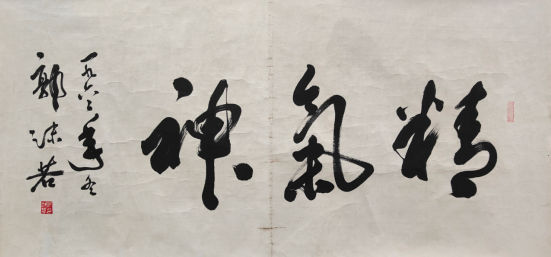 精氣神
一九六二年冬
郭沫若